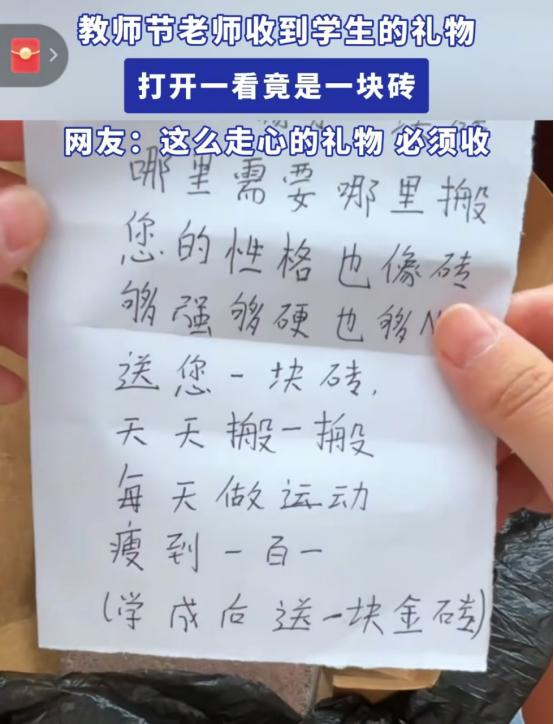 教师节老师收到学生的礼物
打开一看竟是一块砖
网友：这么走心的礼物 必须收
哪里需要哪里搬
您的性格也像砖
够强够硬也够N
送您一块砖，
天天搬一搬
每天做运动
瘦到一百一
(学成后送一块金砖)